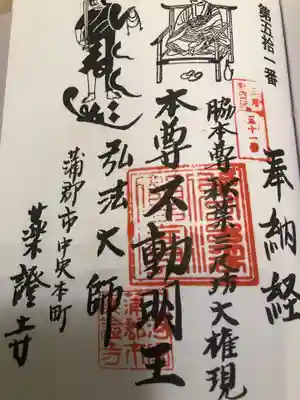 第五拾一番
奉納経
五十一番
脇本尊秋葉三尺坊大権現
本尊不動明王
弘法大師
蒲郡市中央本町
薬證寺